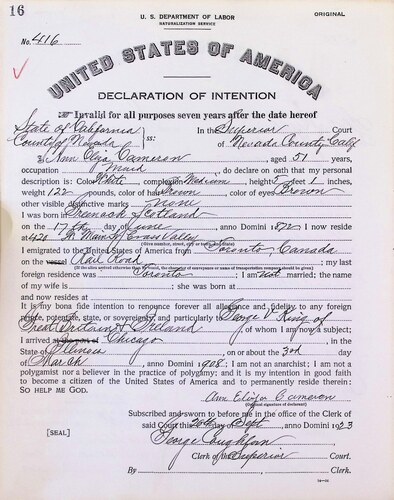 16
U. S. DEPARTMENT OF LABOR
NATURALIZATION SERVICE
ORIGINAL
No. 416
UNITED STATES OF AMERICA
DECLARATION OF INTENTION
☞ Invalid for all purposes seven years after the date hereof
State of California
County of Nevada ss:
In the Superior Court
of Nevada County, Calif
I, Ann Eliza Cameron, aged 51 years,
occupation Maid, do declare on oath that my personal
description is: Color White, complexion Medium, height 5 feet 1 inches,
weight 122 pounds, color of hair Brown, color of eyes Brown
other visible distinctive marks None
I was born in Scotland
on the 17th day of June, anno Domini 1872; I now reside
at 421 W. Main St Grass Valley
(Give number, street, city or town, and State.)
I emigrated to the United States of America from Toronto, Canada
on the vessel Rail Road; my last
(If the alien arrived otherwise than by vessel, the character of conveyance or name of transportation company should be given.)
foreign residence was Toronto; I am not married; the name
of my wife is; she was born at
and now resides at
It is my bona fide intention to renounce forever all allegiance and fidelity to any foreign
prince, potentate, state, or sovereignty, and particularly to George V King of
Great Britain & Ireland, of whom I am now a subject;
I arrived at the port of Chicago, in the
State of Illinois, on or about the 3rd day
of March, anno Domini 1908; I am not an anarchist; I am not a
polygamist nor a believer in the practice of polygamy; and it is my intention in good faith
to become a citizen of the United States of America and to permanently reside therein:
SO HELP ME GOD.
Ann Eliza Cameron
(Original signature of declarant)
Subscribed and sworn to before me in the office of the Clerk of
said Court this 20th day of Sept, anno Domini 1923
[SEAL]
George Coughlan
Clerk of the Superior Court.
By, Clerk.